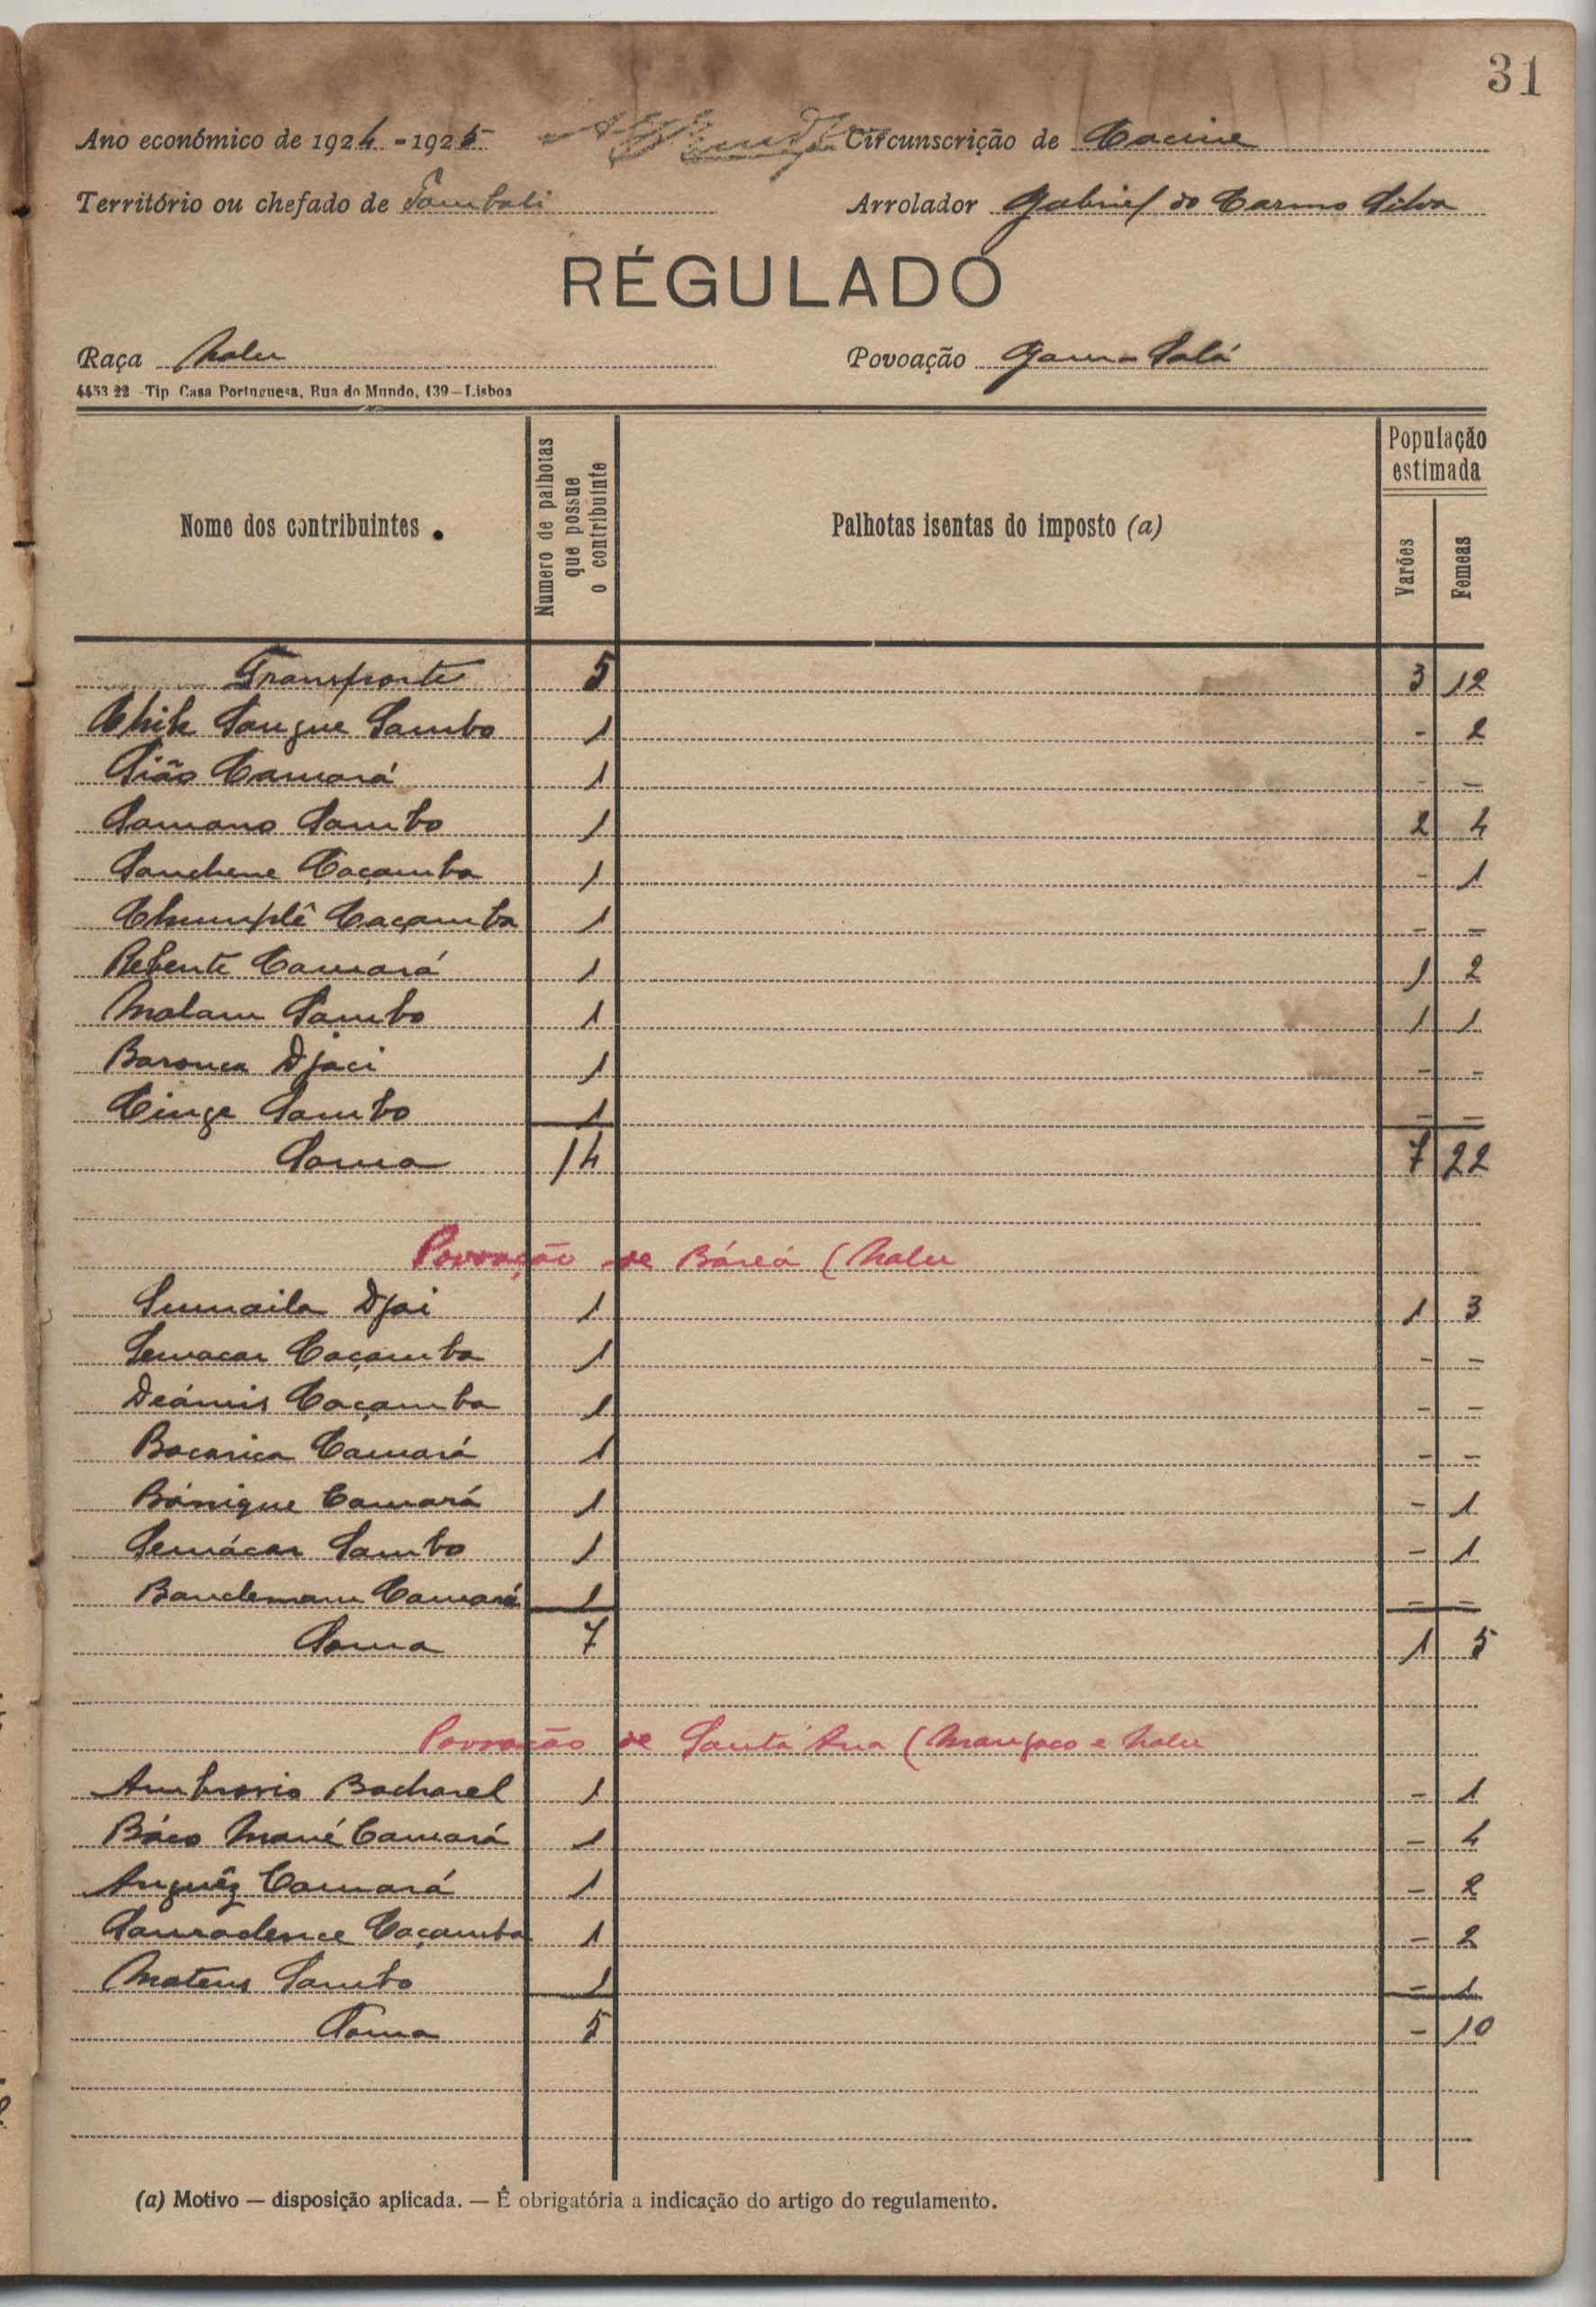 31
Ano económico de 1924-1925 Circunscrição de Cacine
Território ou chefado de Tombali Arrolador Gabriel do Carmo Silva
RÉGULADO
Raça Nalu Povoação Gam-Salá
4453 22 Tip Casa Portuguesa, Rua do Mundo, 139—Lisboa
Nome dos contribuintes
Numero de palhotas que possue o contribuinte
Palhotas isentas do imposto (a)
População estimada
Varões
Femeas
Transporte 5 3 12
Sangue Sambo 1 - 2
Sião Camará 1 - -
Samano Sambo 1 2 4
Sanchene Caçamba 1 - 1
Chumplê Caçamba 1 - -
Rebente Camará 1 1 2
Malam Sambo 1 1 1
Djaci 1 - -
Cinge Sambo 1 - -
Soma 14 7 22
Povoação de Báreá (Nalu
Sumaila Djai 1 1 3
Semacar Caçamba 1 - -
Caçamba 1 - -
Bacarica Camará 1 - -
Bánique Camará 1 - 1
Semácar Sambo 1 - 1
Camará 1 - -
Soma 7 1 5
Povoação de Santa Ana (Manjaco e Nalu
Ambrosio Bacharel 1 - 1
Báco Mané Camará 1 - 4
Anguêz Camará 1 - 2
Caçamba 1 - 2
Mateus Sambo 1 - 1
Soma 5 - 10
(a) Motivo — disposição aplicada. — Ê obrigatória a indicação do artigo do regulamento.